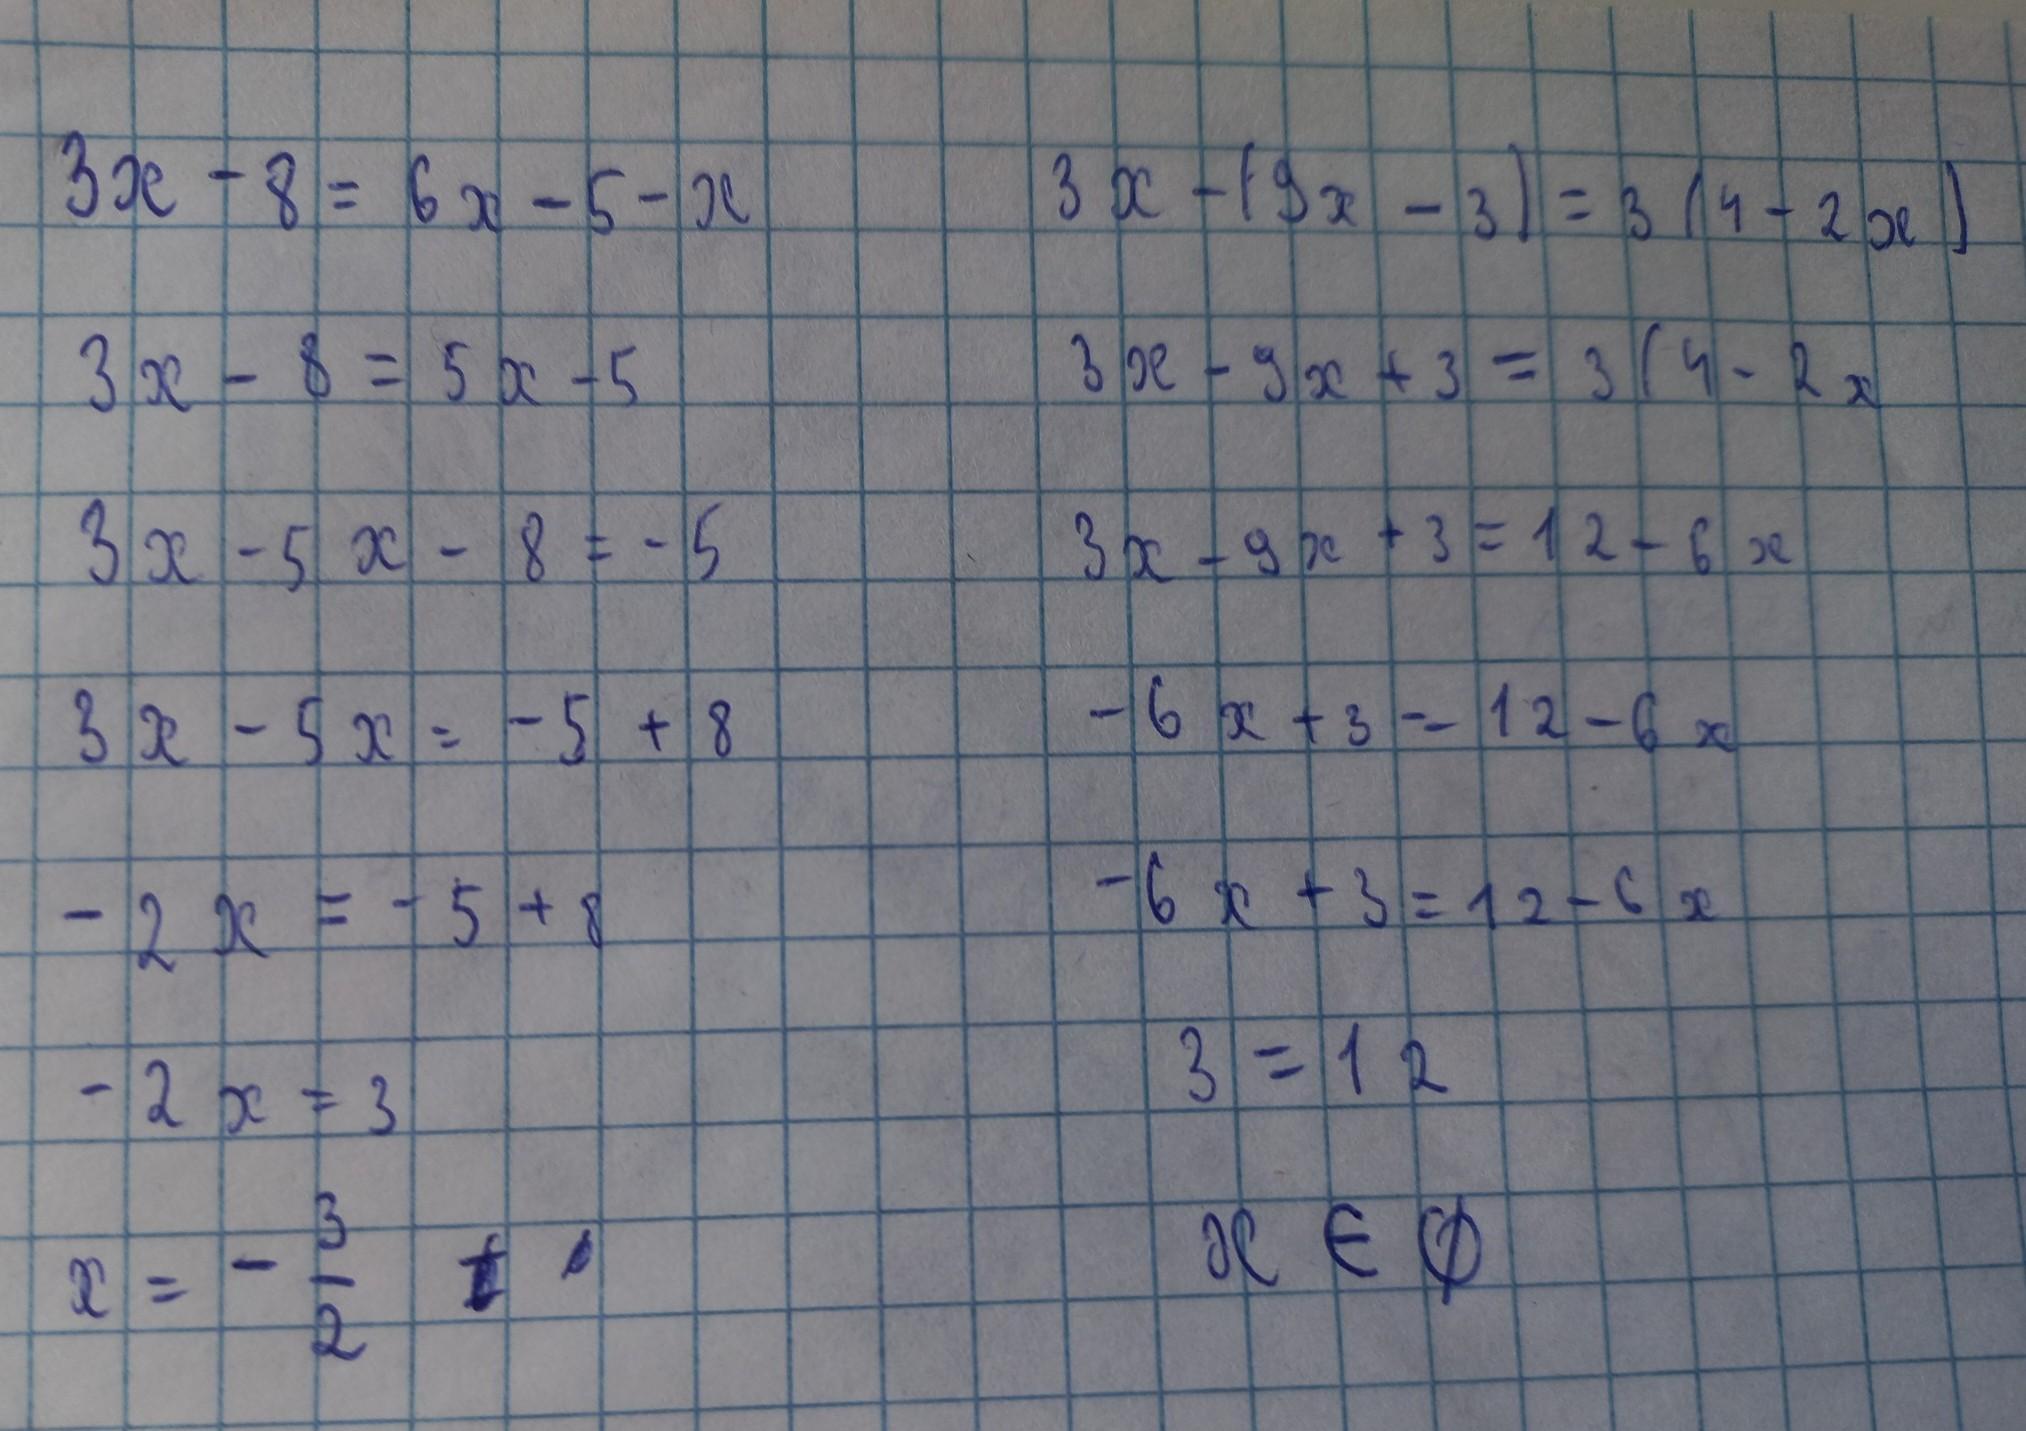 3x - 8 = 6x - 5 - x
3x - 8 = 5x - 5
3x - 5x - 8 = - 5
3x - 5x = - 5 + 8
- 2x = - 5 + 8
- 2x = 3
x = - 3/2
3x - (9x - 3) = 3(4 - 2x)
3x - 9x + 3 = 3(4 - 2x
3x - 9x + 3 = 12 - 6x
- 6x + 3 = 12 - 6x
- 6x + 3 = 12 - 6x
3 = 12
x ∈ ∅